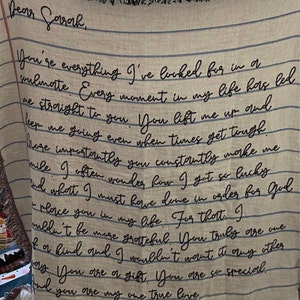 Dear Sarah,
You're everything I've looked for in a
soulmate. Every moment in my life has led
me straight to you. You lift me up and
keep me going even when times get tough.
More importantly you constantly make me
smile. I often wonder how I got so lucky
and what I must have done in order for God
to place you in my life. For that, I
couldn't be more grateful. You truly are one
of a kind and I wouldn't want it any other
way. You are a gift, You are so special,
and you are my one true love.